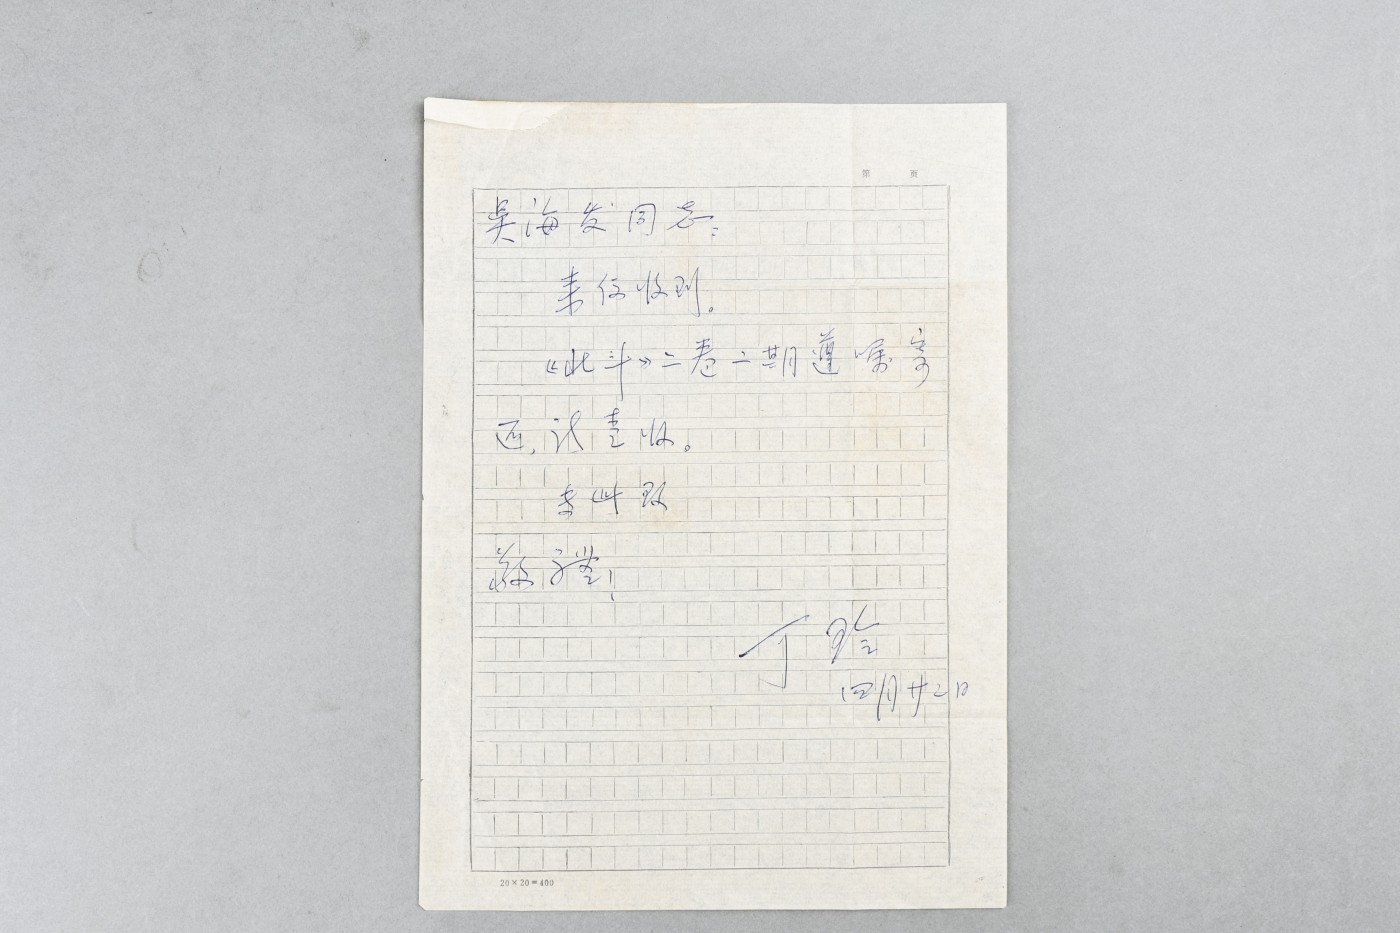 第 页
吴海发同志：
来信收到。
《北斗》二卷二期遵嘱寄
还，请查收。
专此 致
敬礼！
丁玲
四月廿二日
20×20=400